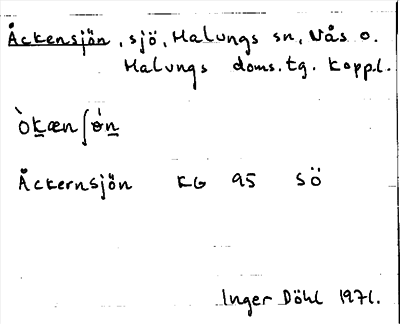 Åckensjön, sjö, Malungs sn, Nås o.
Malungs doms.tg. Koppl.
òkænʃón
Åckernsjön KG 95 SÖ
Inger Döhl 1971.